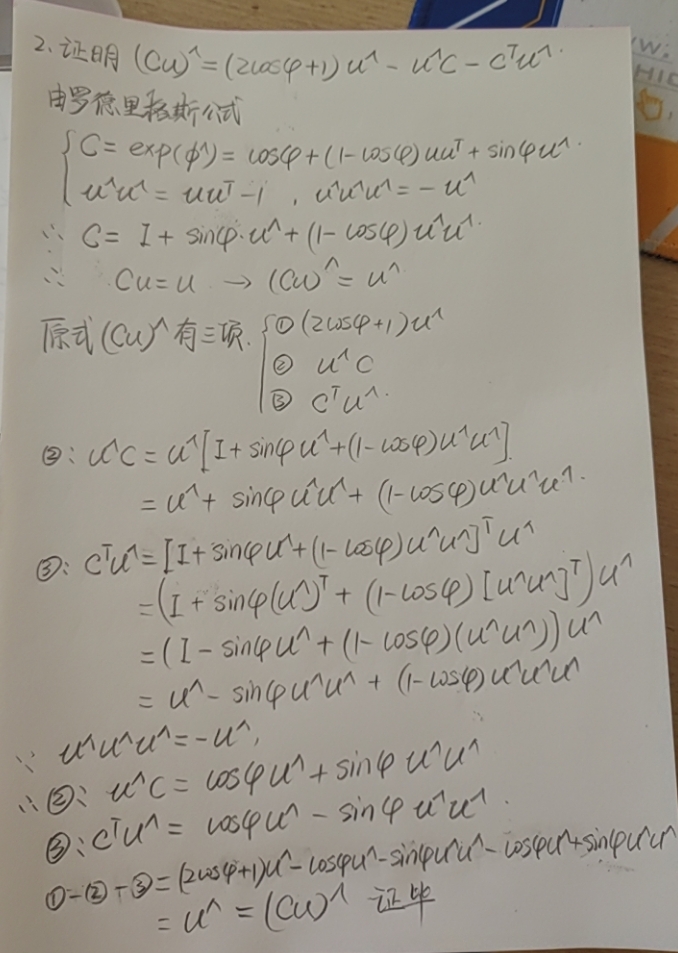 2. 证明 (Cu)^ = (2cosφ+1)u^ - u^C - Cᵀu^.
由罗德里格斯公式
C = exp(ϕ^) = cosφ + (1-cosφ)uuᵀ + sinφu^.
u^u^ = uuᵀ-1 , u^u^u^ = -u^
∴ C = I + sinφ·u^ + (1-cosφ)u^u^.
∴ Cu=u → (Cu)^ = u^
原式(Cu)^有三项. ①(2cosφ+1)u^
② u^C
③ Cᵀu^.
②: u^C = u^[I+sinφu^+(1-cosφ)u^u^]
= u^ + sinφu^u^ + (1-cosφ)u^u^u^.
③: Cᵀu^ = [I+sinφu^+(1-cosφ)u^u^]ᵀu^
= (I + sinφ(u^)ᵀ + (1-cosφ)[u^u^]ᵀ)u^
= (I - sinφu^ + (1-cosφ)(u^u^))u^
= u^ - sinφu^u^ + (1-cosφ)u^u^u^
∵ u^u^u^ = -u^,
∴ ②: u^C = cosφu^ + sinφu^u^
③: Cᵀu^ = cosφu^ - sinφu^u^.
①-②-③ = (2cosφ+1)u^ - cosφu^ - sinφu^u^ - cosφu^ + sinφu^u^
= u^ = (Cu)^ 证毕